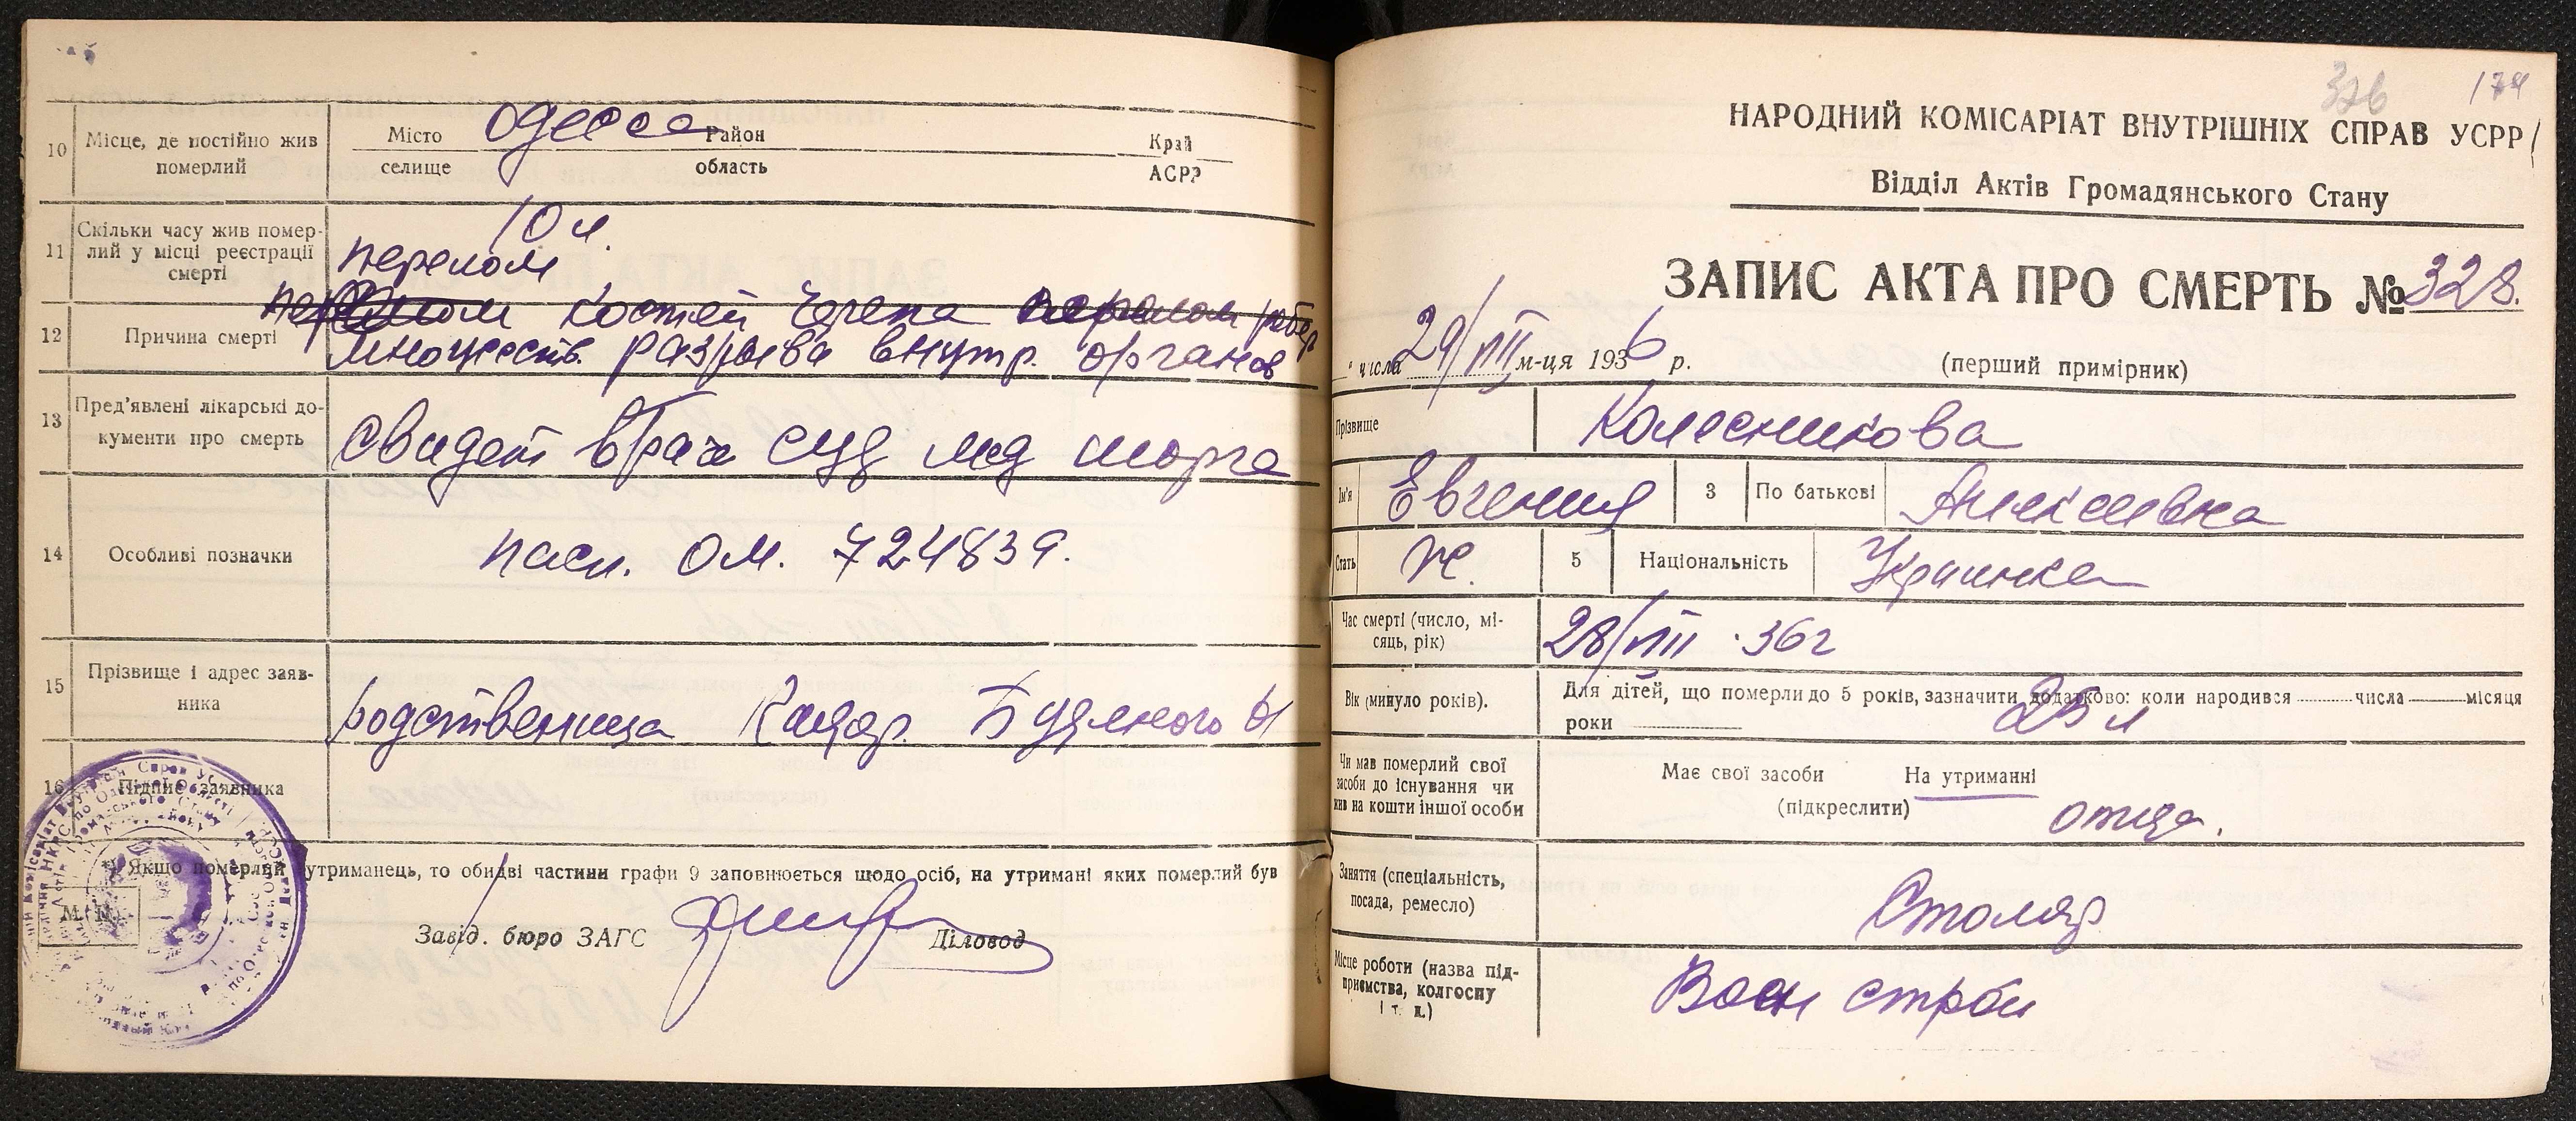 10 Місце, де постійно жив померлий
Місто селище Одесса Район область Край АСРР
11 Скільки часу жив померлий у місці реєстрації смерті
10 л.
12 Причина смерті
перелом
костей черепа перелом ребер
множеств. разрыва внутр. органов
13 Пред'явлені лікарські документи про смерть
свидет врач суд мед морга
14 Особливі позначки
пасп. ОМ. 724839.
15 Прізвище і адрес заявника
родственница Буденного
16 Підпис заявника
М. П.
*) Якщо померлий утриманець, то обидві частини графи 9 заповнюється щодо осіб, на утримані яких померлий був
Завід. бюро ЗАГС Діловод
326 174
НАРОДНИЙ КОМІСАРІАТ ВНУТРІШНІХ СПРАВ УСРР
Відділ Актів Громадянського Стану
ЗАПИС АКТА ПРО СМЕРТЬ № 328.
" числа 29/VIII м-ця 1936 р. (перший примірник)
Прізвище Колесникова
Ім'я Евгения 3 По батькові Алексеевна
Стать ж. 5 Національність Украинка
Час смерті (число, місяць, рік) 28/VIII 36 г
Вік (минуло років). Для дітей, що померли до 5 років, зазначити додатково: коли народився числа місяця
роки 25 л
Чи мав померлий свої засоби до існування чи жив на кошти іншої особи
Має свої засоби На утриманні
(підкреслити) отца.
Заняття (спеціальність, посада, ремесло) Столяр
Місце роботи (назва підприємства, колгоспу і т. п.) Воен строй